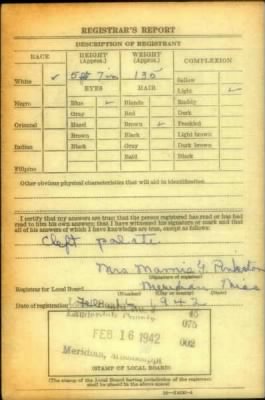 REGISTRAR'S REPORT
DESCRIPTION OF REGISTRANT
RACE HEIGHT (Approx.) WEIGHT (Approx.) COMPLEXION
5 ft 7 in 135
White ✓ Sallow
EYES HAIR Light ✓
Negro Blue ✓ Blonde Ruddy
Gray Red Dark
Oriental Hazel Brown ✓ Freckled
Brown Black Light brown
Indian Black Gray Dark brown
Bald Black
Filipino
Other obvious physical characteristics that will aid in identification
I certify that my answers are true; that the person registered has read or has had
read to him his own answers; that I have witnessed his signature or mark and that
all of his answers of which I have knowledge are true, except as follows:
Cleft palate
Mrs
(Signature of registrar)
Registrar for Local Board Meridian Miss
(Number) (City or county) (State)
Date of registration 1942
Lauderdale County 45
FEB 16 1942 075
002
Meridian, Mississippi
(STAMP OF LOCAL BOARD)
(The stamp of the Local Board having jurisdiction of the registrant
shall be placed in the above space)